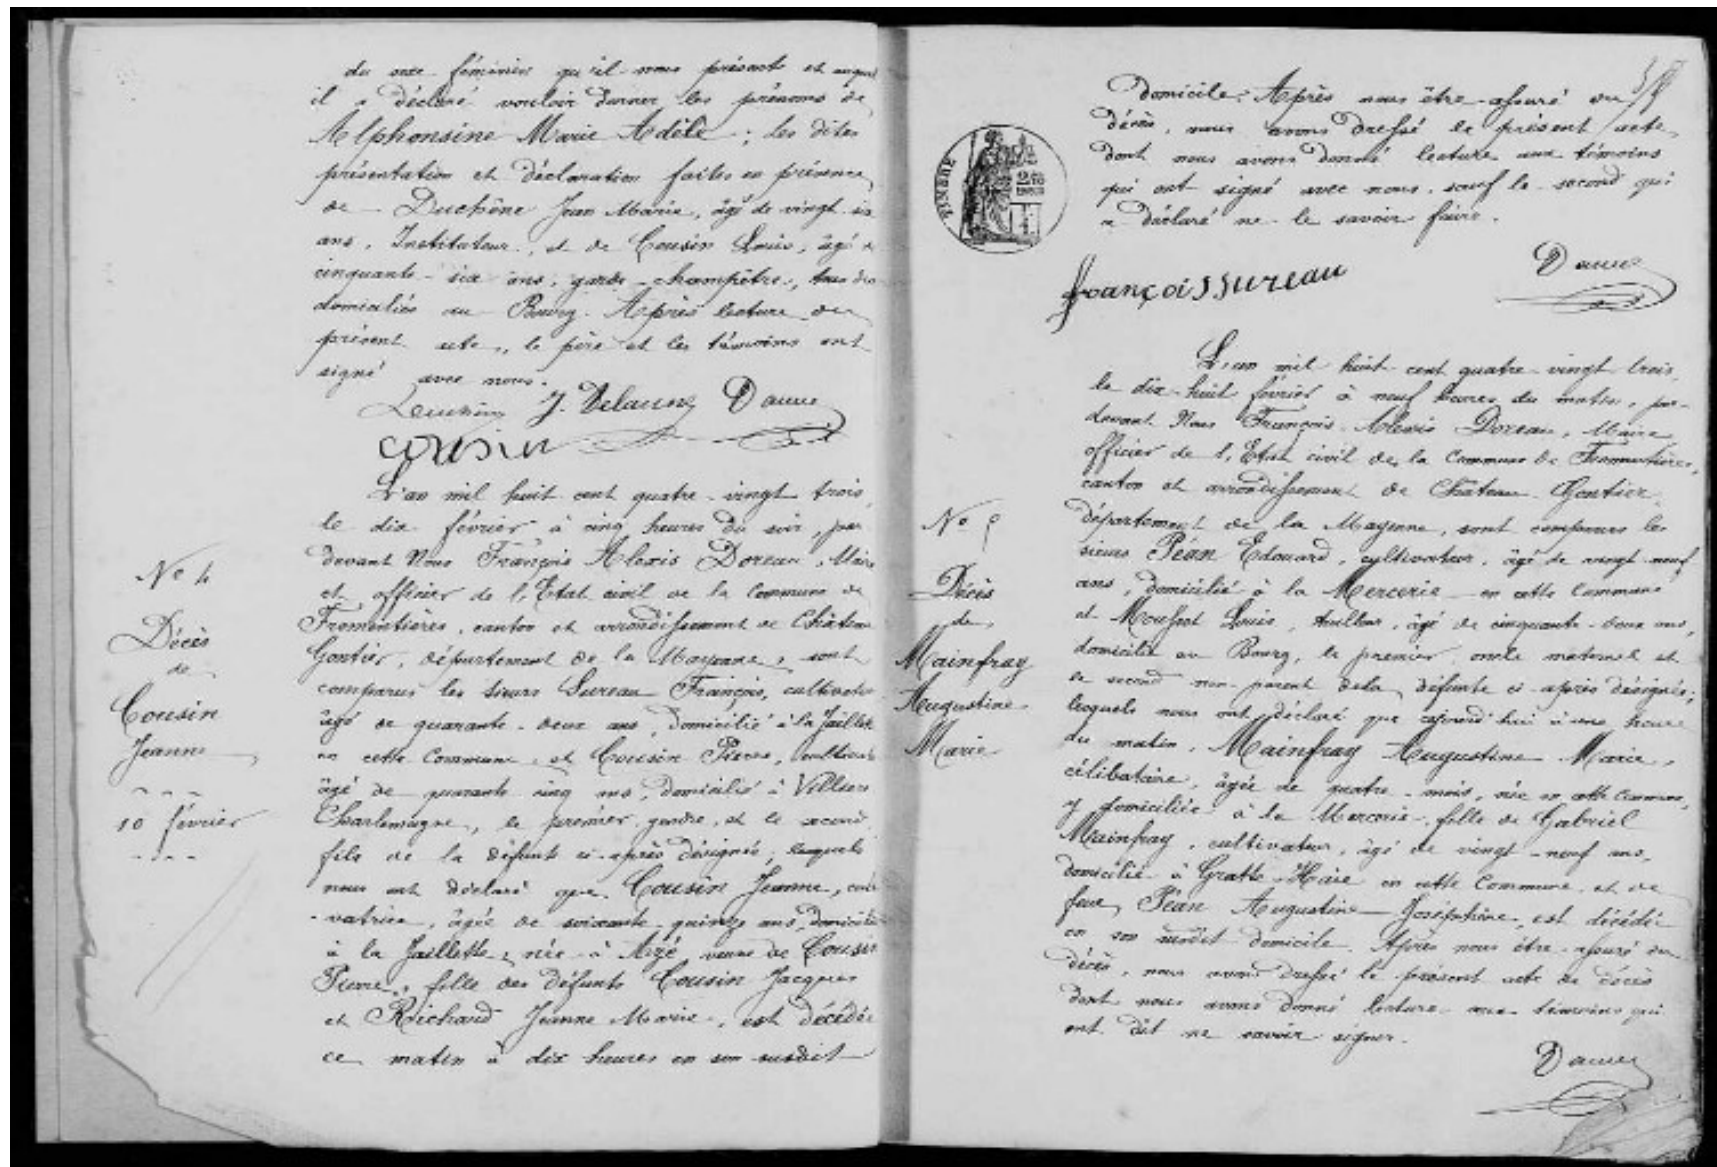 du sexe féminin qu'il nous présente et auquel
il a déclaré vouloir donner les prénoms de
Alphonsine Marie Adèle ; les dites
présentation et déclaration faites en présence
de Duchêne Jean Marie, âgé de vingt six
ans, Instituteur, et de Cousin Louis, âgé de
cinquante-six ans, garde-champêtre, tous deux
domiciliés au Bourg. Après lecture du
présent acte, le père et les témoins ont
signé avec nous.
J. Delaunay
Cousin
L'an mil huit cent quatre-vingt trois,
le dix février à cinq heures du soir, par
devant Nous François Alexis Doreau, Maire
et officier de l'Etat civil de la Commune de
Fromentières, canton et arrondissement de Château
Gontier, département de la Mayenne, sont
comparus les sieurs Sureau François, cultivateur
âgé de quarante-deux ans, domicilié à la Jaillette
en cette Commune, et Cousin Pierre, cultivateur
âgé de quarante cinq ans, domicilié à Villiers
Charlemagne, le premier gendre, et le second
fils de la défunte ci-après désignée, lesquels
nous ont déclaré que Cousin Jeanne, culti
-vatrice, âgée de soixante-quinze ans, domiciliée
à la Jaillette, née à Azé, veuve de Cousin
Pierre, fille des défunts Cousin Jacques
et Richard Jeanne Marie, est décédée
ce matin à dix heures en son susdit
No 4
Décès
de
Cousin
Jeanne
10 février
domicile. Après nous être assuré du
décès, nous avons dressé le présent acte,
dont nous avons donné lecture aux témoins
qui ont signé avec nous, sauf le second qui
a déclaré ne le savoir faire.
TIMBRE
François Sureau
L'an mil huit cent quatre-vingt trois,
le dix-huit février à neuf heures du matin, par-
devant Nous François Alexis Doreau, Maire
officier de l'Etat civil de la Commune de Fromentières,
canton et arrondissement de Château-Gontier,
département de la Mayenne, sont comparus les
sieurs Péan Edouard, cultivateur, âgé de vingt-neuf
ans, domicilié à la Mercerie en cette Commune
et Louis, tailleur, âgé de cinquante-deux ans,
domicilié au Bourg, le premier oncle maternel et
le second non-parent de la défunte ci-après désignée ;
lesquels nous ont déclaré que aujourd'hui à une heure
du matin, Mainfray Augustine Marie,
célibataire, âgée de quatre mois, née en cette Commune,
y domiciliée à la Mercerie, fille de Gabriel
Mainfray, cultivateur, âgé de vingt-neuf ans,
domicilié à Gratte-Haie en cette Commune, et de
feue Péan Augustine Joséphine, est décédée
en son susdit domicile. Après nous être assuré du
décès, nous avons dressé le présent acte de décès
dont nous avons donné lecture aux témoins qui
ont dit ne savoir signer.
No 5
Décès
de
Mainfray
Augustine
Marie